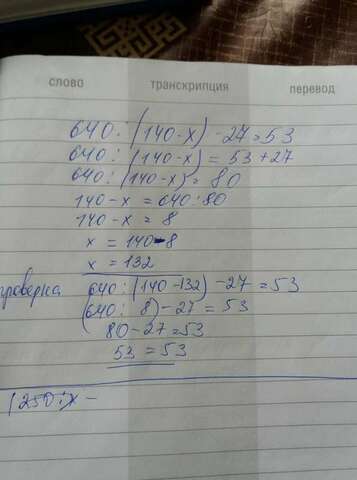 слово транскрипция перевод
640 : (140 - x) - 27 = 53
640 : (140 - x) = 53 + 27
640 : (140 - x) = 80
140 - x = 640 : 80
140 - x = 8
x = 140 - 8
x = 132
проверка 640 : (140 - 132) - 27 = 53
(640 : 8) - 27 = 53
80 - 27 = 53
53 = 53
(250 : x -